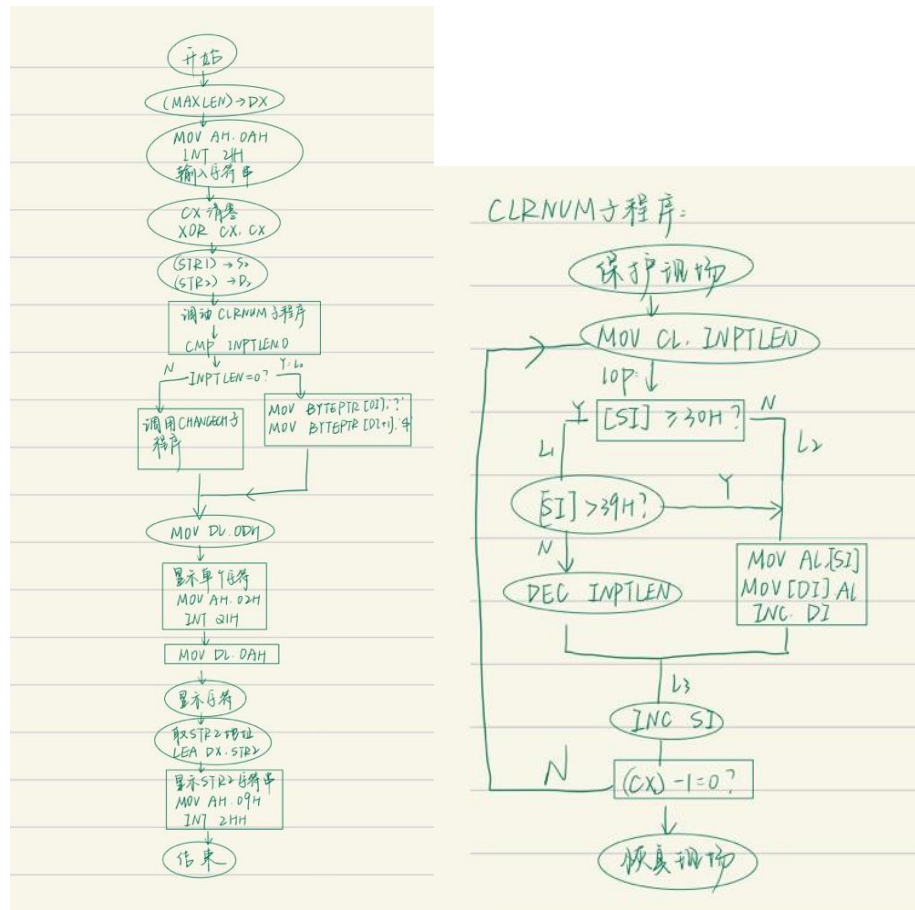 开始
(MAXLEN)→DX
MOV AH.0AH
INT 21H
输入字符串
CX清零
XOR CX.CX
(STR1)→S2
(STR2)→D2
调动CLRNUM子程序
CMP INPTLEN.0
N
INPTLEN=0?
Y.L0
调用CHANGECH子
程序
MOV BYTEPTR[DI].'?'
MOV BYTEPTR[DI+1].'$'
MOV DL.0DH
显示单个字符
MOV AH.02H
INT 21H
MOV DL.0AH
显示字符
取STR2地址
LEA DX.STR2
显示STR2字符串
MOV AH.09H
INT 2HH
结束
CLRNUM子程序:
保护现场
MOV CL.INPTLEN
lOP:
Y
[SI]≥30H?
N
L1
L2
[SI]>39H?
Y
N
DEC INPTLEN
MOV AL[SI]
MOV[DI]AL
INC.DI
L3
INC SI
N
(CX)-1=0?
恢复现场